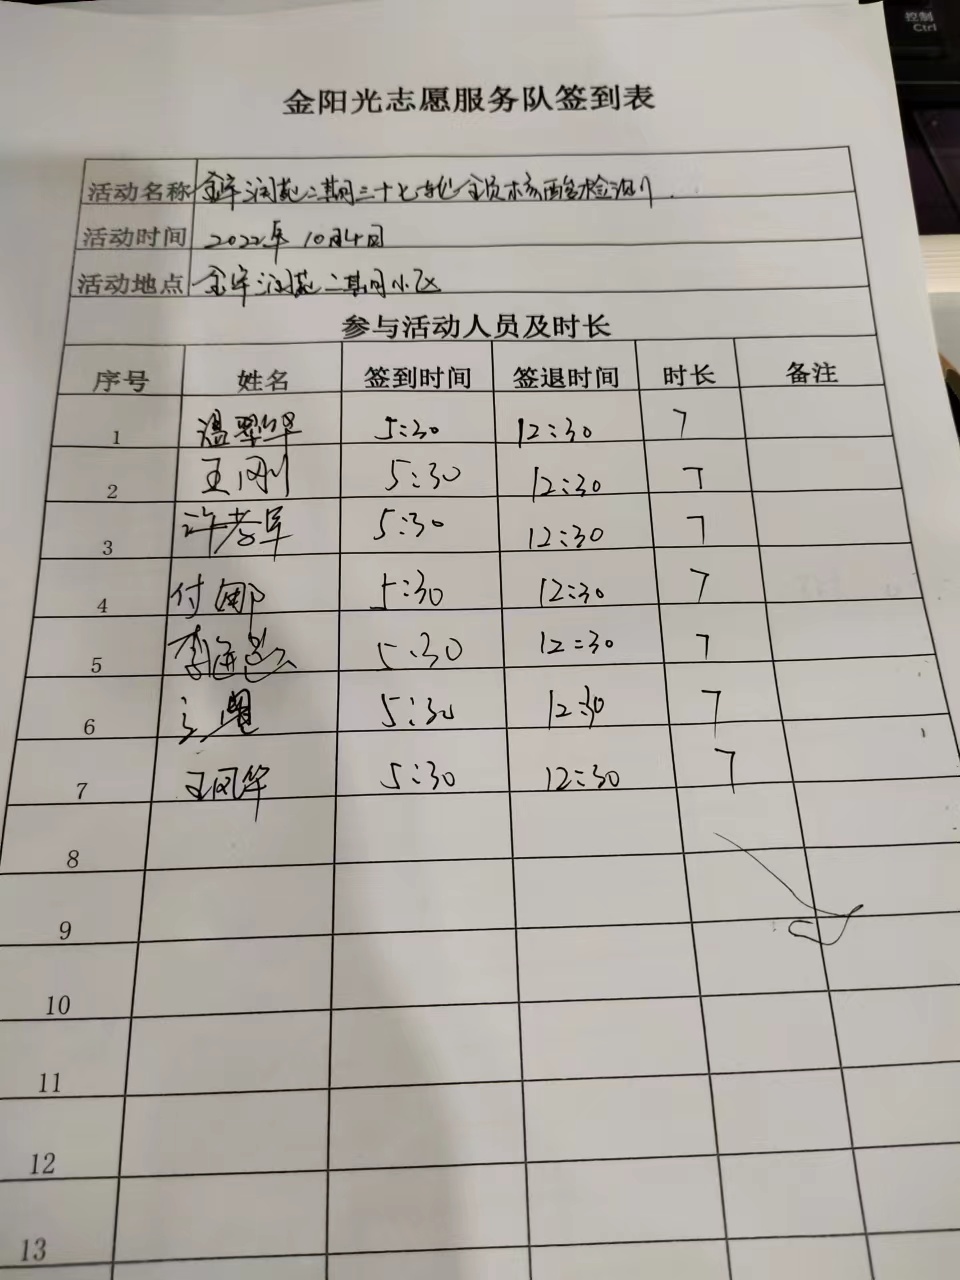 控制
Ctrl
金阳光志愿服务队签到表
活动名称 金宇润苑二期三十七轮全员核酸检测
活动时间 2022年10月4日
活动地点 金宇润苑二期小区
参与活动人员及时长
序号 姓名 签到时间 签退时间 时长 备注
1 温翠华 5:30 12:30 7
2 王刚 5:30 12:30 7
3 许孝军 5:30 12:30 7
4 付娜 5:30 12:30 7
5 李 5:30 12:30 7
6 5:30 12:30 7
7 王凤华 5:30 12:30 7
8
9
10
11
12
13